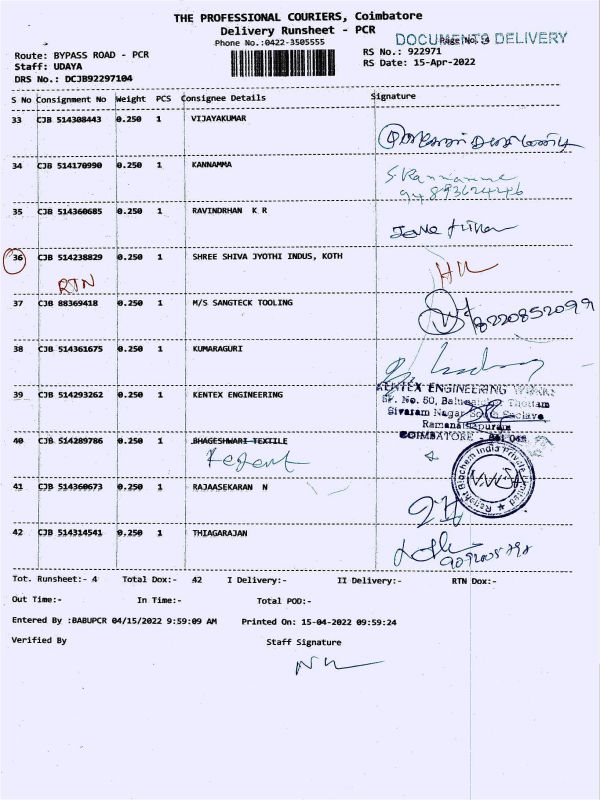 THE PROFESSIONAL COURIERS, Coimbatore
Delivery Runsheet - PCR
DOCUMENTS DELIVERY
Page No.:4
Phone No.:0422-3505555
Route: BYPASS ROAD - PCR
RS No.: 922971
Staff: UDAYA
RS Date: 15-Apr-2022
DRS No.: DCJB92297104
S No Consignment No Weight PCS Consignee Details Signature
33 CJB 514308443 0.250 1 VIJAYAKUMAR
34 CJB 514170990 0.250 1 KANNAMMA
S. Kannamma
35 CJB 514360685 0.250 1 RAVINDRHAN K R
36 CJB 514238829 0.250 1 SHREE SHIVA JYOTHI INDUS, KOTH
RTN
37 CJB 88369418 0.250 1 M/S SANGTECK TOOLING
8220852099
38 CJB 514361675 0.250 1 KUMARAGURI
39 CJB 514293262 0.250 1 KENTEX ENGINEERING
KENTEX ENGINEERING WORKS
SF. No. 50, Thottam
Sivaram Nagar South Enclave
Ramanathapuram
COIMBATORE - 641 045
40 CJB 514289786 0.250 1 BHAGESHWARI TEXTILE
Regent
Regent Biochem India Private Limited
41 CJB 514360673 0.250 1 RAJAASEKARAN N
42 CJB 514314541 0.250 1 THIAGARAJAN
Tot. Runsheet:- 4 Total Dox:- 42 I Delivery:- II Delivery:- RTN Dox:-
Out Time:- In Time:- Total POD:-
Entered By :BABUPCR 04/15/2022 9:59:09 AM Printed On: 15-04-2022 09:59:24
Verified By Staff Signature